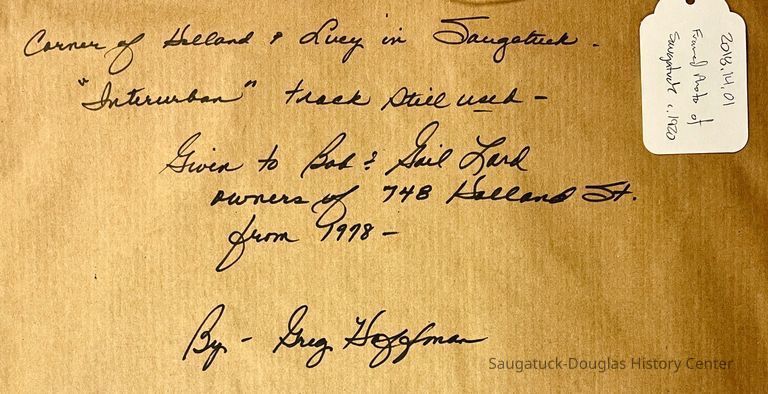 Corner of Holland & Lucy in Saugatuck.
"Interurban" track still used -
Given to Bob & Gail Lard
owners of 748 Holland St.
from 1978 -
By - Greg Hoffman
2018.14.01
Framed Photo of
Saugatuck c.1920
Saugatuck-Douglas History Center